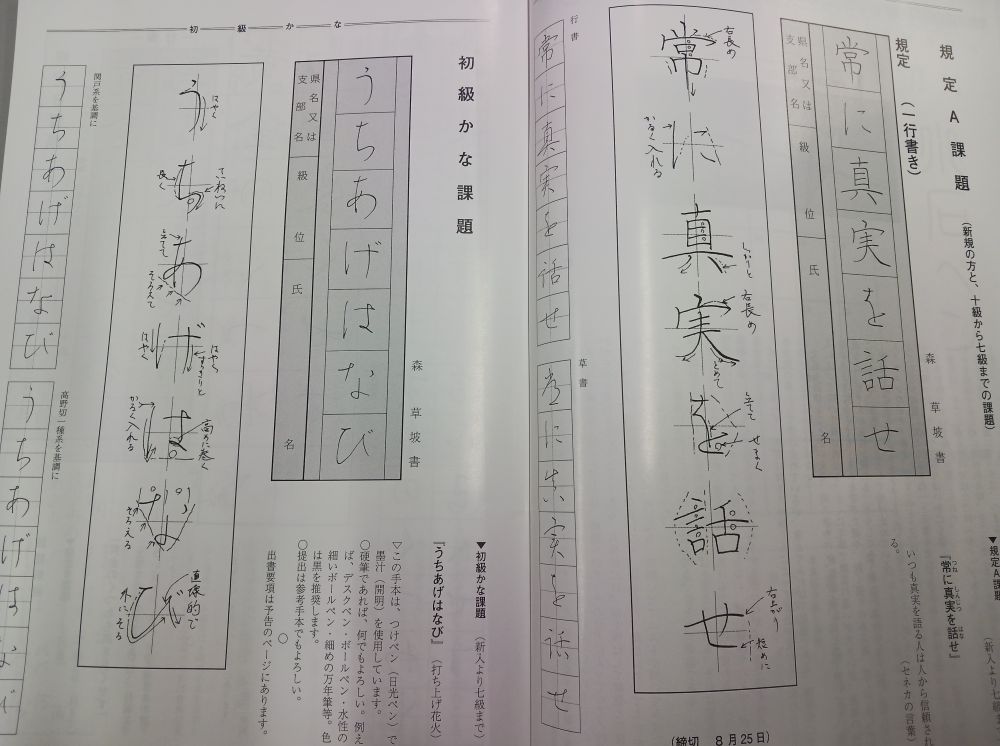 規定A課題
(新規の方と、十級から七級までの課題)
規定
(一行書き)
森草坡書
常に真実を話せ
県名又は
支部名
級位
氏
名
右長め
常
かるく入れる
に
真
しっかりと
右長め
実
とめて
立てて
せまく
を
話
右上がり
短めに
せ
行書
常に真実を話せ
草書
常に真実を話せ
▼規定A課題
(新人より七級ま
『常に真実を話せ』
つね
しんじつ
はな
いつも真実を語る人は人から信頼され
る。
(セネカの言葉)
(締切 8月25日)
初級かな
初級かな課題
森草坡書
うちあげはなび
県名又は
支部名
級位
氏
名
はやく
う
長く
ち
立てて
そろえて
あ
はやく
はやく
げ
かるく入れる
高めに巻く
は
そろえる
な
直線的で
外にそる
び
関戸系を基調に
うちあげはなび
高野切一種系を基調に
うちあげはなび
▼初級かな課題
(新人より七級まで)
『うちあげはなび』
(打ち上げ花火)
▽この手本は、つけペン(日光ペン)で
墨汁(開明)を使用しています。
○硬筆であれば、何でもよろしい。例え
ば、デスクペン・ボールペン・水性の
細いボールペン・細めの万年筆等。色
は黒を推奨します。
○提出は参考手本でもよろしい。
○
出書要項は予告のページにあります。